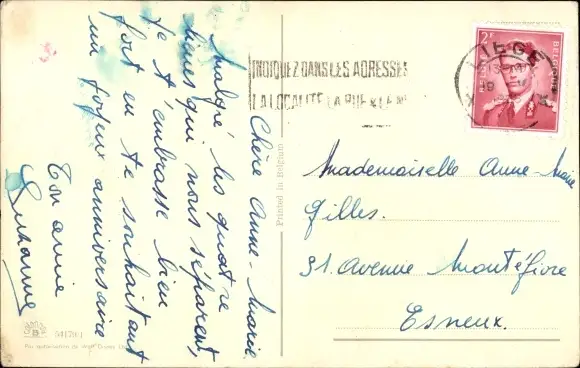 Chère Anne-Marie
Malgré les quatre
lieues qui nous séparent,
je t'embrasse bien
fort en te souhaitant
un joyeux anniversaire
Ton amie
Suzanne
Printed in Belgium
INDIQUEZ DANS LES ADRESSES
LA LOCALITE LA RUE & LE N°
LIEGE
2F
BELGIE-BELGIQUE
Mademoiselle Anne-Marie
Gilles.
31. Avenue Montéfiore
Esneux.
Par autorisation de